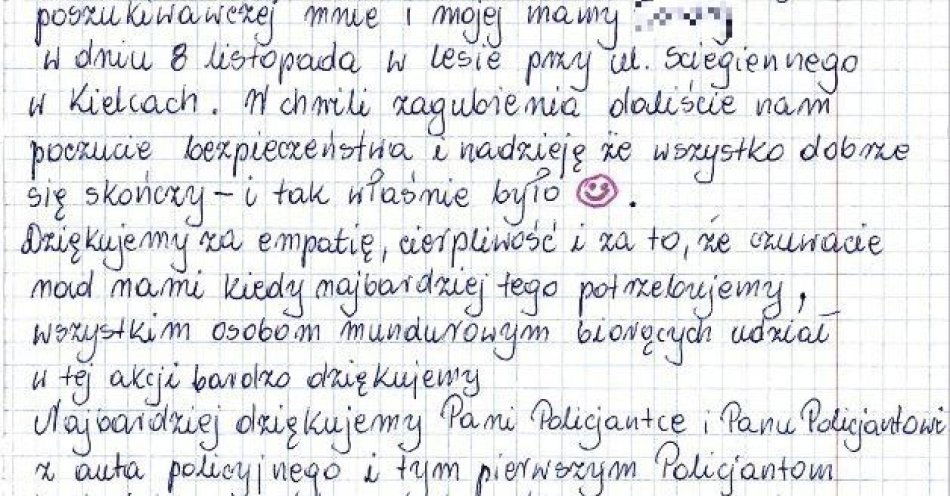 poszukiwawczej mnie i mojej mamy
w dniu 8 listopada w lesie przy ul. Ściegiennego
w Kielcach. W chwili zagubienia daliście nam
poczucie bezpieczeństwa i nadzieję że wszystko dobrze
się skończy – i tak właśnie było ☺.
Dziękujemy za empatię, cierpliwość i za to, że czuwacie
nad nami kiedy najbardziej tego potrzebujemy,
wszystkim osobom mundurowym biorących udział
w tej akcji bardzo dziękujemy
Najbardziej dziękujemy Pani Policjantce i Panu Policjantowi
z auta policyjnego i tym pierwszym Policjantom